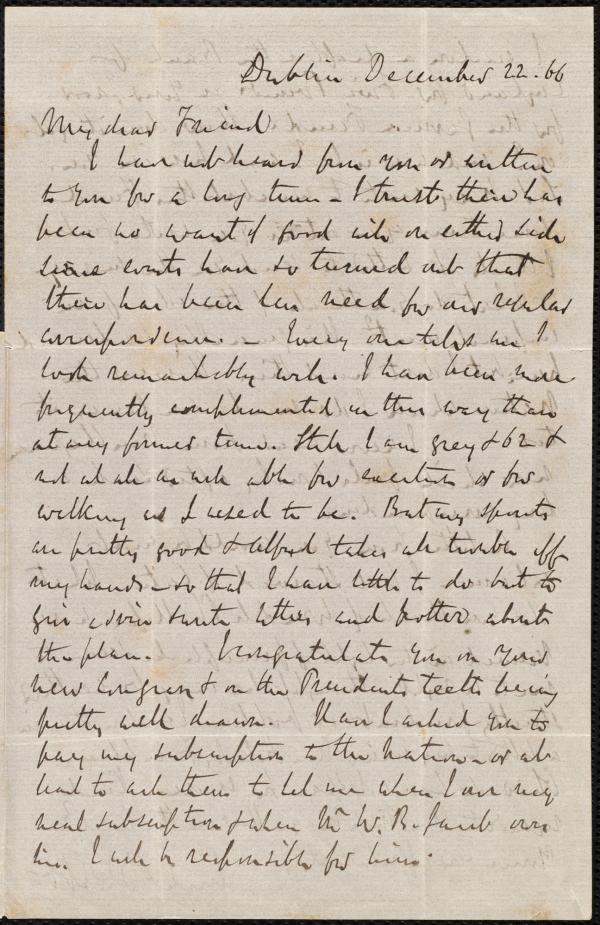 Dublin December 22. 66
My dear Friend
I have not heard from you or written
to you for a long time - I trust there has
been no want of good will on either side
since events have so turned out that
there has been less need for our regular
correspondence. - Every one tells me I
look remarkably well. I have been more
frequently complimented in this way than
at any former time. Still I am grey & 62 &
not at all as well able for exertion or for
walking as I used to be. But my spirits
are pretty good & Alfred takes all trouble off
my hands - so that I have little to do but to
give advice write letters and potter about
the place. I congratulate you on your
new Congress & on the President's teeth being
pretty well drawn. Have I asked you to
pay my subscription to the Nation - or at
least to ask them to let me when I owe my
next subscription & when Mr W. B. Jacob owes
his. I will be responsible for him.